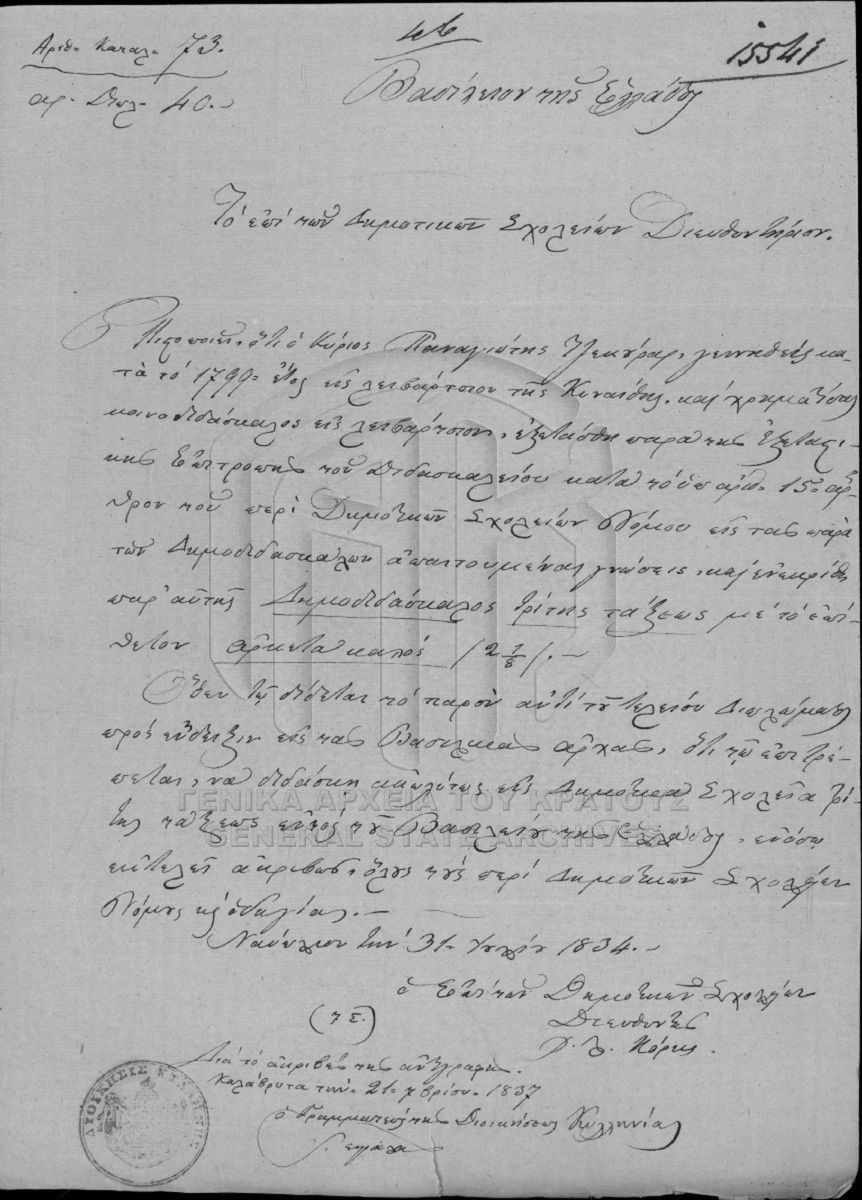 46
15541
Αριθ. Καταλ. 73.
αρ. Διπλ. 40.
Βασίλειον της Ελλάδος
Το επί των Δημοτικών Σχολείων Διευθυντήριον.
Πιστοποιεί, ότι ο Κύριος Παναγιώτης γεννηθείς κα-
τά το 1799 έτος εις Λειβάρτσιον της Κυναίθης, και χρηματίσας
κοινοδιδάσκαλος εις Λειβάρτσιον, εξετάσθη παρά της Εξεταστι-
κής Επιτροπής του Διδασκαλείου κατά το υπ' αριθ. 15 άρ-
θρον του περί Δημοτικών Σχολείων Νόμου εις τας παρά
των Δημοδιδασκάλων απαιτουμένας γνώσεις, και ενεκρίθη
παρ' αυτής Δημοδιδάσκαλος τρίτης τάξεως με το επί-
θετον αρκετά καλός /2 1/8/.-
Όθεν τω δίδεται το παρόν αντί του τελείου Διπλώματος
προς ένδειξιν εις τας Βασιλικάς αρχάς, ότι τω επιτρέ-
πεται, να διδάσκη ακωλύτως εις Δημοτικά Σχολεία τρί-
της τάξεως εντός του Βασιλείου της Ελλάδος, ενόσω
εκτελεί ακριβώς όλους τους περί Δημοτικών Σχολείων
Νόμους κ οδηγίας.-
Ναύπλιον την 31 Ιουλίου 1834.-
ο επί των Δημοτικών Σχολείων
Διευθυντής
(τ.Σ.)
Κόκης.
Διά το ακριβές της αντιγραφής.
Καλάβρυτα την 21 7βρίου 1837
ο Γραμματεύς της Διοικήσεως Κυλληνίας
ΔΙΟΙΚΗΣΙΣ ΚΥΛΛΗΝΙΑΣ
ΓΕΝΙΚΑ ΑΡΧΕΙΑ ΤΟΥ ΚΡΑΤΟΥΣ
GENERAL STATE ARCHIVES